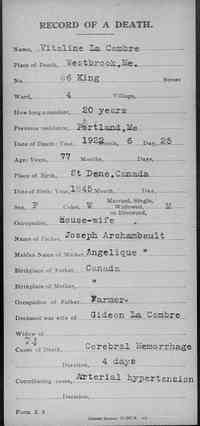 RECORD OF A DEATH.
Name, Vitaline La Combre
Place of Death, Westbrook, Me.
No. 66 King Street
Ward, 4 Village,
How long a resident, 20 years
Previous residence, Portland, Me
Date of Death: Year, 1922 Month, 6 Day, 25
Age: Years, 77 Months, Days,
Place of Birth, St Dene, Canada
Date of Birth: Year, 1845 Month, Day,
Sex, F Color, W Married, Single, Widowed, or Divorced, M
Occupation, House-wife
Name of Father, Joseph Archambault
Maiden Name of Mother, Angelique "
Birthplace of Father, Canada
Birthplace of Mother, "
Occupation of Father, Farmer
Deceased was wife of Gideon La Combre
Widow of
74
Cause of Death, Cerebral Hemorrhage
Duration, 4 days
Contributing cause, Arterial hypertension
Duration,